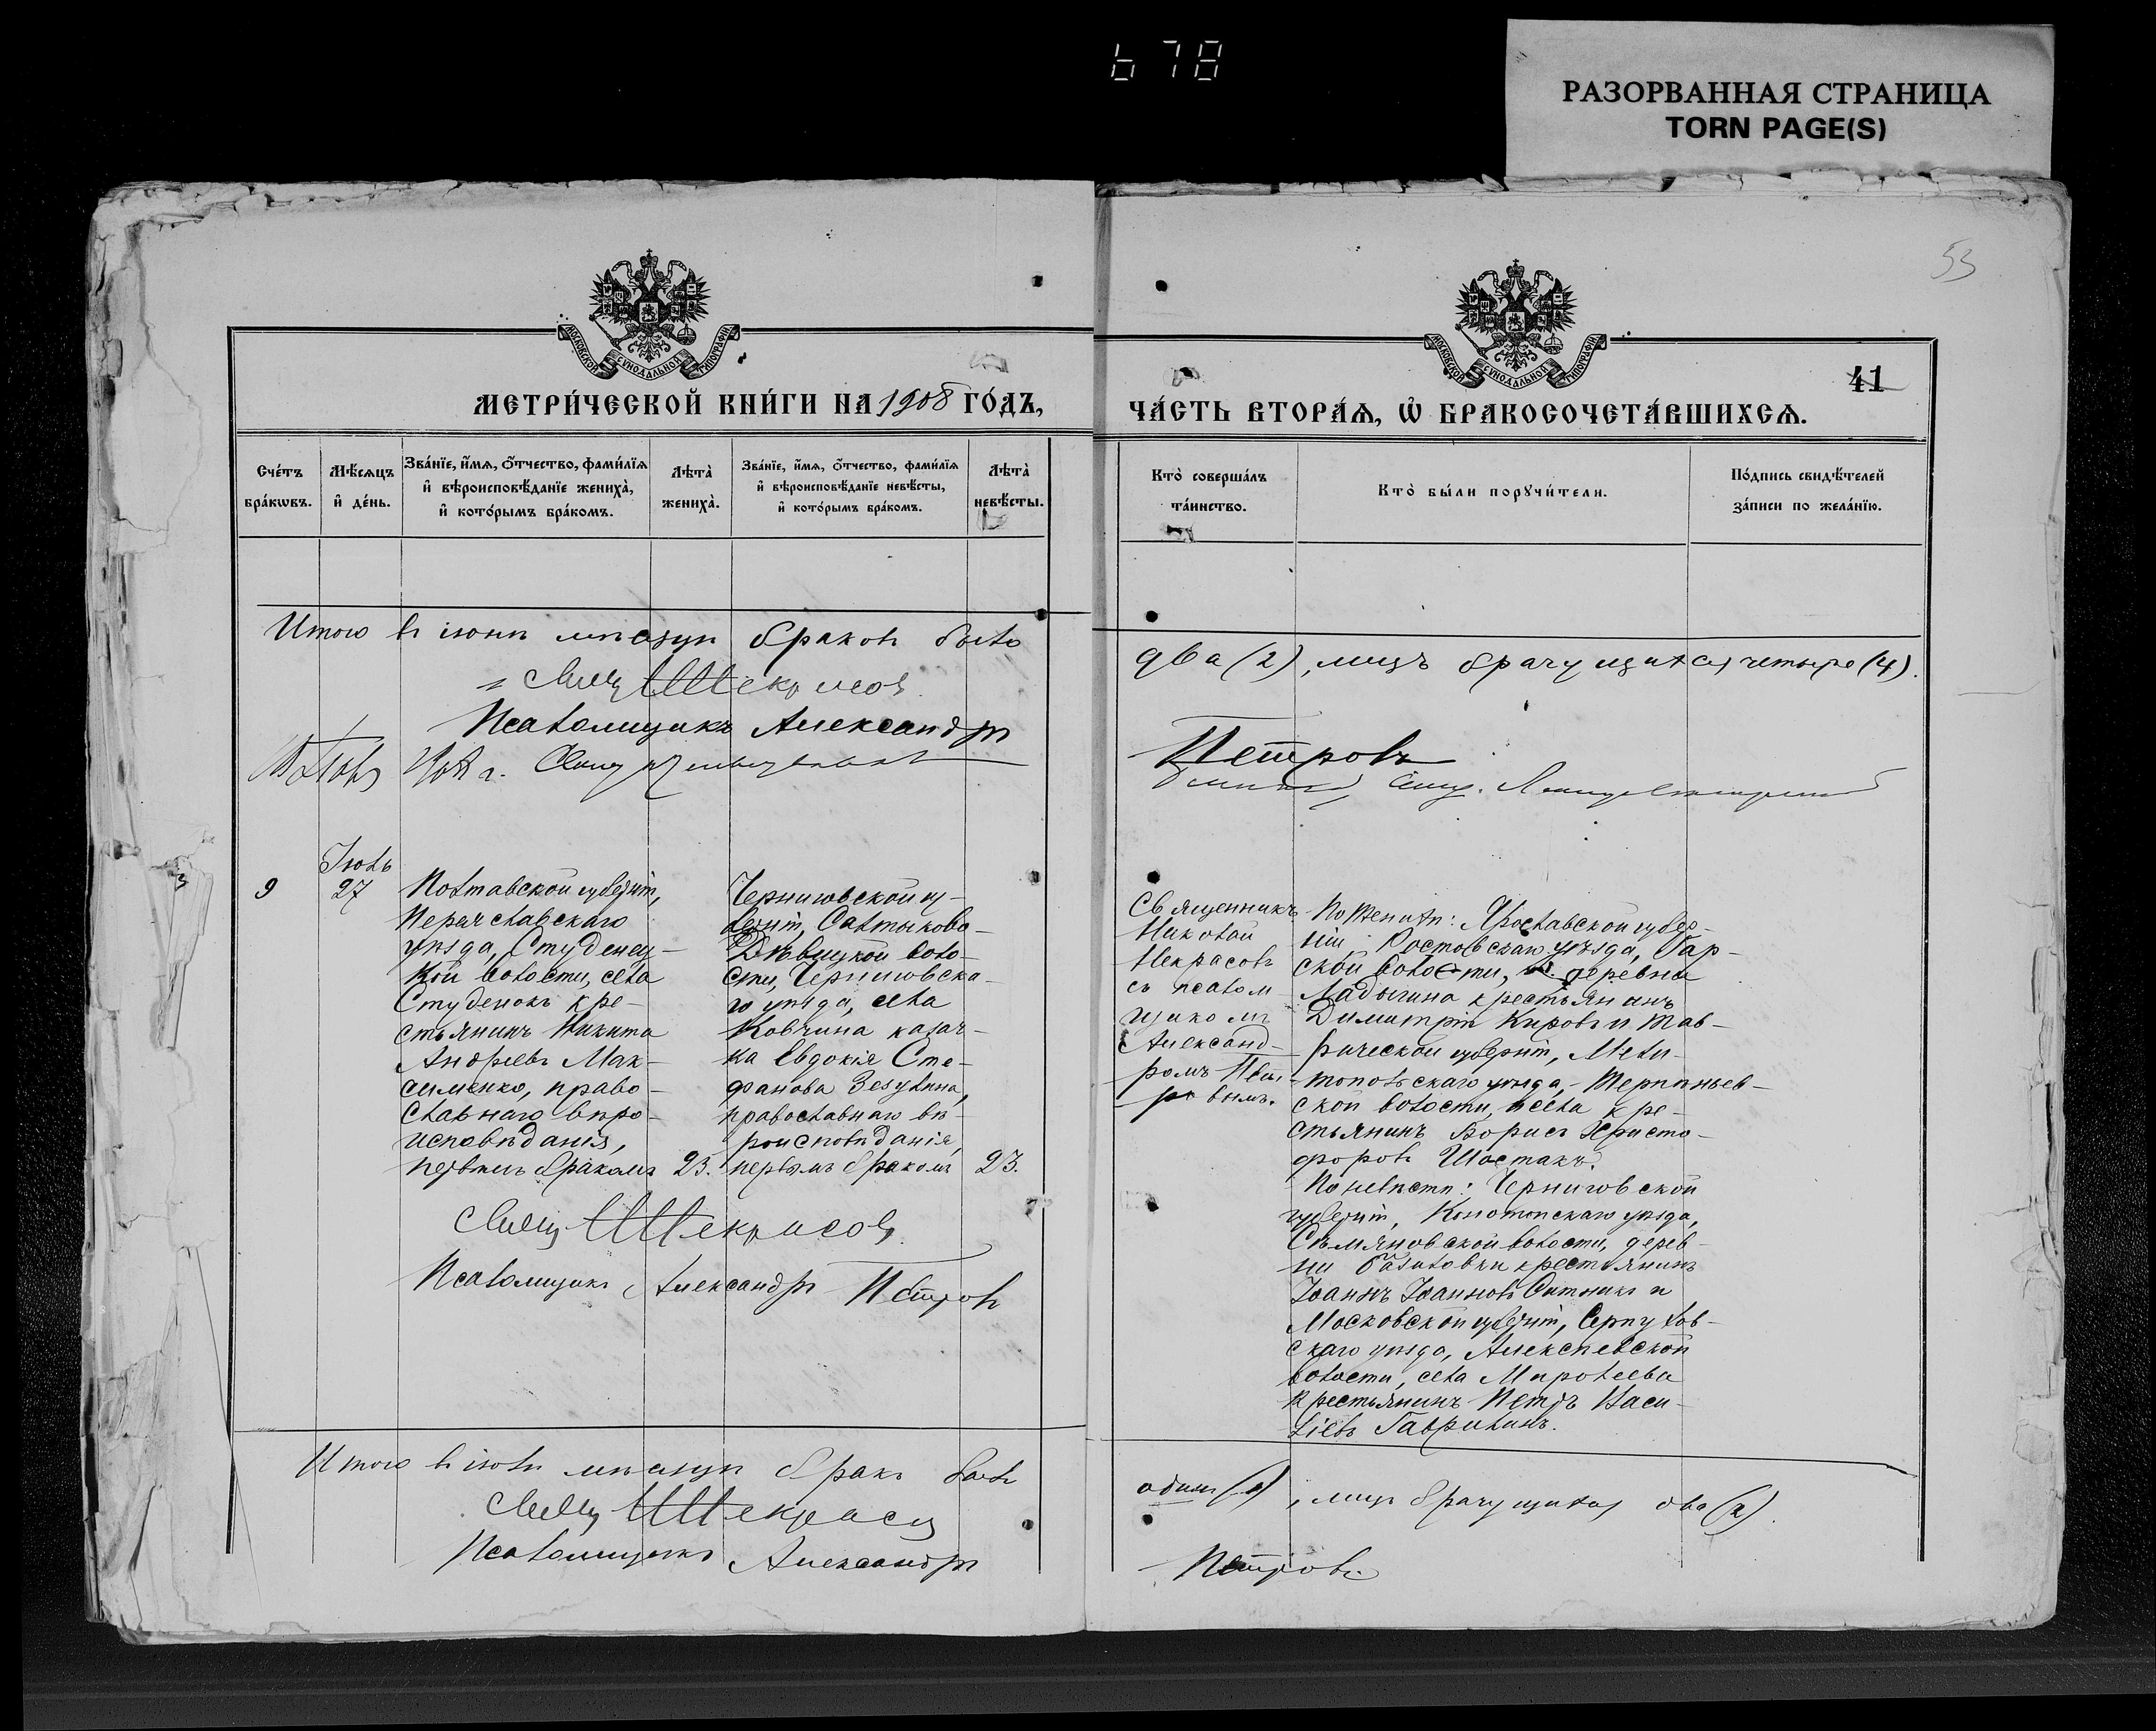 678
РАЗОРВАННАЯ СТРАНИЦА
TORN PAGE(S)
53
МОСКОВСКОЙ СѴНОДАЛЬНОЙ ТИПОГРАФІИ
МОСКОВСКОЙ СѴНОДАЛЬНОЙ ТИПОГРАФІИ
41
МЕТРИ́ЧЕСКОЙ КНИ́ГИ НА 1908 ГО́ДЪ,
ЧА́СТЬ ВТОРА́Ѧ, Ѡ҆ БРАКОСОЧЕТА́ВШИХСѦ.
Сче́тъ
бра́кѡвъ.
Мѣ́сѧцъ
и҆ де́нь.
Зва́нїе, и҆́мѧ, ѻ҆́тчество, фами́лїѧ
и҆ вѣроисповѣ́данїе жениха̀,
и҆ кото́рымъ бра́комъ.
Лѣта̀
жениха̀.
Зва́нїе, и҆́мѧ, ѻ҆́тчество, фами́лїѧ
и҆ вѣроисповѣ́данїе невѣ́сты,
и҆ кото́рымъ бра́комъ.
Лѣта̀
невѣ́сты.
Кто̀ соверша́лъ
та́инство.
Кто̀ бы́ли порꙋчи́тели.
По́дпись свидѣ́телей
за́писи по жела́нїю.
Итого въ іюнѣ мѣсяцѣ браковъ было
два (2), лицъ брачущихся четыре (4).
Свящ Н Некрасовъ
Псаломщикъ Александръ
Петровъ
1908 г.
9
Іюль
27
Полтавской губерніи,
Переяславскаго
уѣзда, Студенец-
кой волости, села
Студенокъ кре-
стьянинъ Никита
Андреевъ Мак-
сименко, право-
славнаго вѣро-
исповѣданія,
первымъ бракомъ
23.
Черниговской гу-
берніи, Салтыково-
Дѣвицкой воло-
сти, Черниговска-
го уѣзда, села
Ковчина казач-
ка Евдокія Сте-
фанова Зезулина,
православнаго вѣ-
роисповѣданія,
первымъ бракомъ
23.
Священникъ
Николай
Некрасовъ
съ псалом
щикомъ
Александ-
ромъ Пет-
ровымъ.
По женихѣ: Ярославской губер-
ніи, Ростовскаго уѣзда, Гар-
ской волости, деревни
Ладыгина крестьянинъ
Димитрій Кировъ и Тав-
рической губерніи, Мели-
топольскаго уѣзда, Терпѣньев-
ской волости, и села кре-
стьянинъ Борисъ Христо-
форовъ Шостакъ.
По невѣстѣ: Черниговской
губерніи, Конотопскаго уѣзда,
Семяновской волости, дерев-
ни крестьянинъ
Іоаннъ Іоанновъ Ситникъ и
Московской губерніи, Серпухов-
скаго уѣзда, Алексѣевской
волости, села Миролеева
крестьянинъ Петръ Васи-
ліевъ Гаврилинъ.
Свящ Н Некрасовъ
Псаломщикъ Александръ Петровъ
Итого въ іюлѣ мѣсяцѣ бракъ былъ
одинъ (1), лицъ брачущихся два (2).
Свящ Н Некрасовъ
Псаломщикъ Александръ
Петровъ